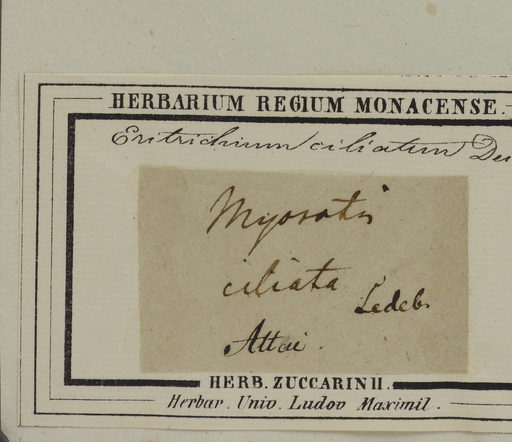 HERBARIUM REGIUM MONACENSE.
Eritrichium ciliatum
Myosotis
ciliata
Ledeb.
Altai.
HERB. ZUCCARINII.
Herbar. Univ. Ludov Maximil.